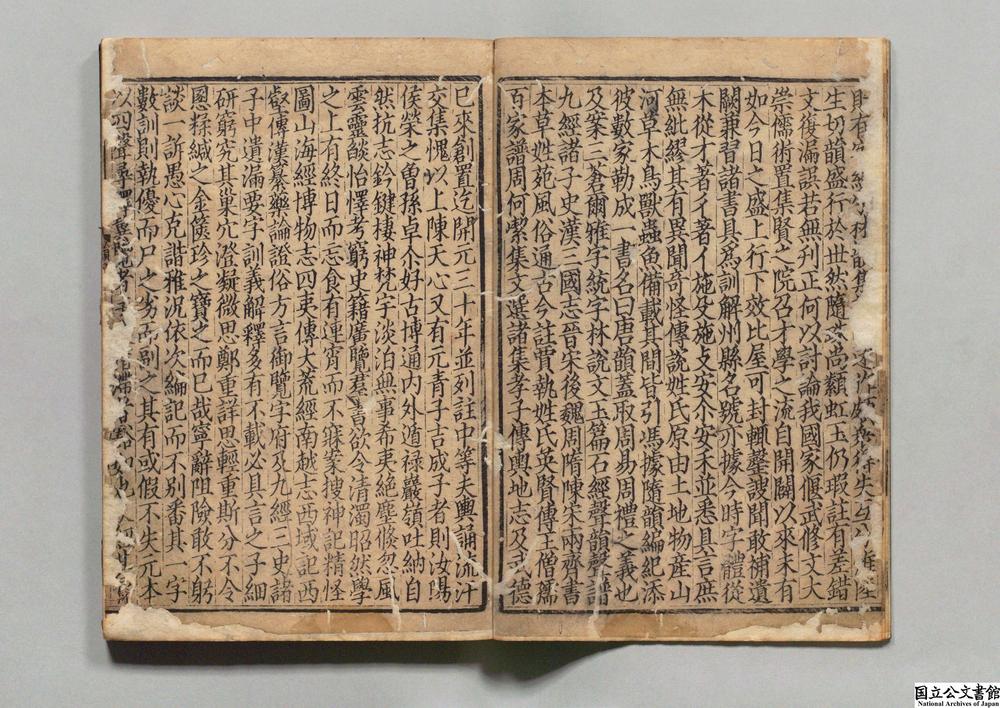 有字林韻集得失互
生切韻盛行於世然隨珠尚纇虹玉仍瑕註有差錯
文復漏誤若無刊正何以討論我國家偃武修文大
崇儒術置集賢之院召才學之流自開闢以來未有
如今日之盛上行下效比屋可封輒罄謏聞敢補遺
闕兼習諸書具爲訓解州縣名號亦據今時字體從
木從才著彳著亻施殳施攴安尒安禾並悉具言庶
無紕繆其有異聞奇怪傳說姓氏原由土地物產山
河草木鳥獸蟲魚備載其間皆引馮據隨韻編紀添
彼數家勒成一書名曰唐韻蓋取周易周禮之義也
及案三蒼爾雅字統字林說文玉篇石經聲韻聲譜
九經諸子史漢三國志晉宋後魏周隋陳宋兩齊書
本草姓苑風俗通古今註賈執姓氏英賢傳王僧孺
百家譜周何潔集文選諸集孝子傳輿地志及武德
已來創置迄開元三十年並列註中等夫輿誦流汗
交集愧以上陳天心又有元青子吉成子者則汝陽
侯榮之曾孫卓尒好古博通内外遁祿巖嶺吐納自
然抗志鈐鍵棲神梵宇淡泊無事希夷絕塵倏忽風
雲靈燄怡懌考窮史籍廣覽群書欲令清濁昭然學
之上有終日而忘食有連宵而不寐案搜神記精怪
圖山海經博物志四夷傳大荒經南越志西域記西
壑傳漢纂藥論證俗方言御覽字府及九經三史諸
子中遺漏要字訓義解釋多有不載必具言之子細
研窮究其巢穴澄凝微思鄭重詳思輕重斯分不令
慁糅緘之金篋珍之寶之而已哉寧辭阻險敢不躬
談一訴愚心克諧雅況依次編記而不別番其一字
數訓則執優而尸之劣而副之其有或假不失元本
以四聲尋
国立公文書館
National Archives of Japan